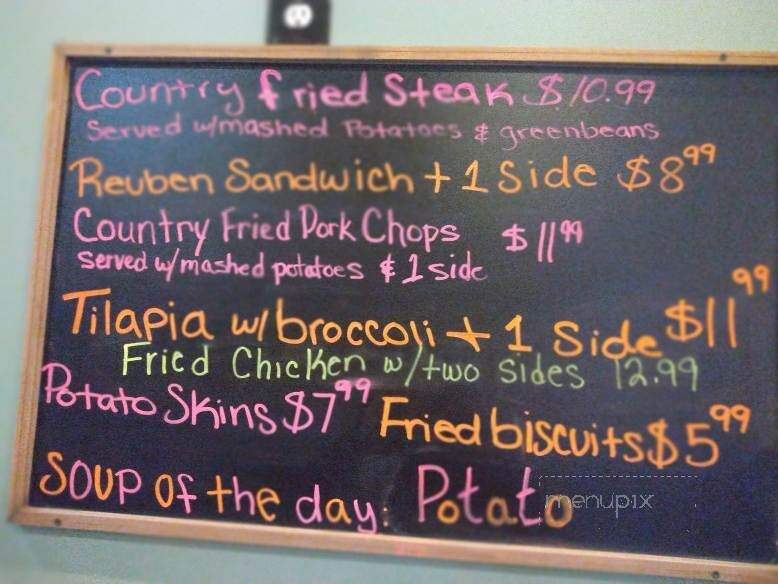 Country fried Steak $10.99
Served w/mashed Potatoes & greenbeans
Reuben Sandwich + 1 Side $8 99
Country Fried Pork Chops $11 99
served w/mashed potatoes & 1 side
Tilapia w/broccoli + 1 Side $11 99
Fried Chicken w/two sides 12.99
Potato Skins $7 99 Fried biscuits $5 99
SOUP of the day: Potato
menupix